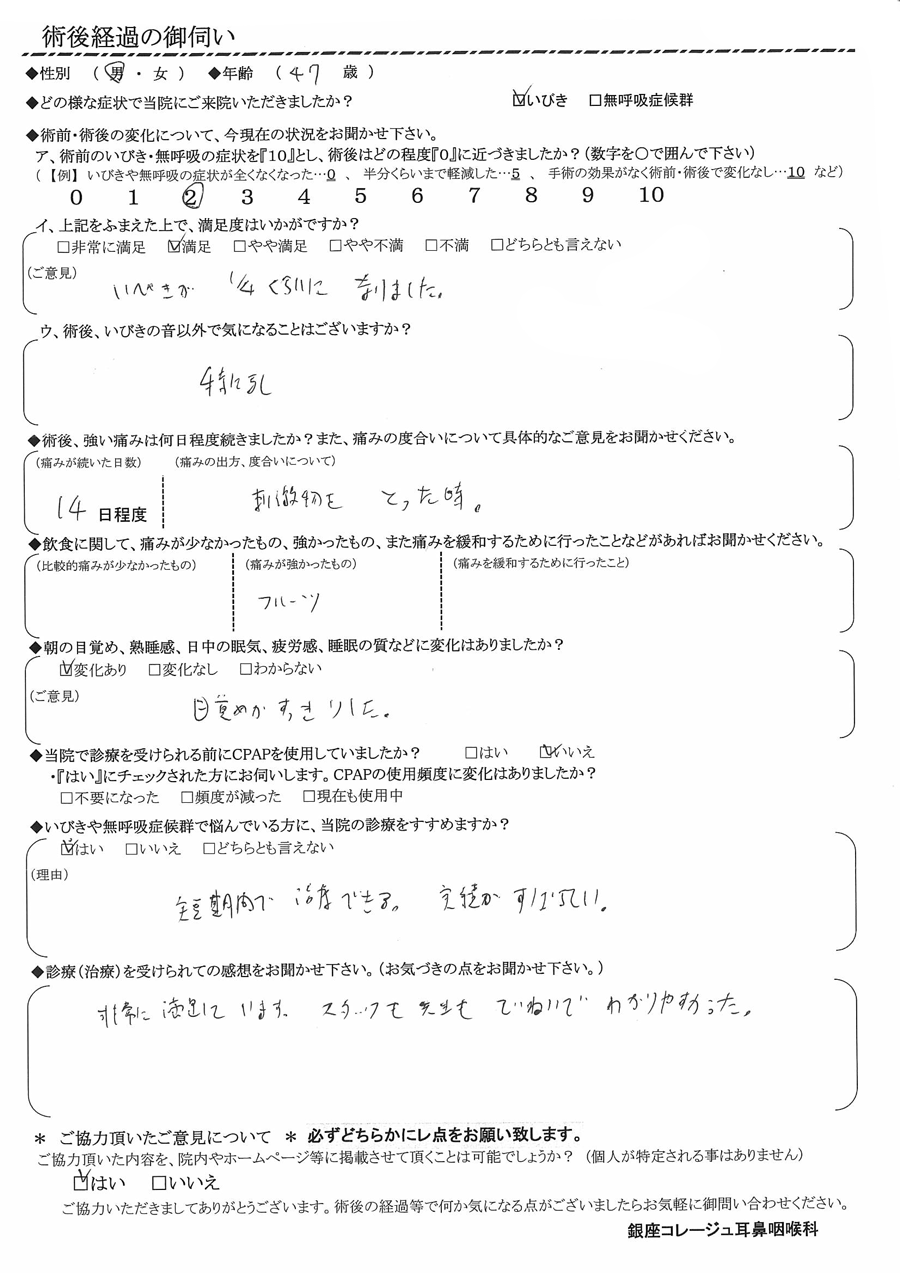 術後経過の御伺い
◆性別 （ 男 ・ 女 ） ◆年齢 （ 47 歳 ）
◆どの様な症状で当院にご来院いただきましたか？ ☑いびき □無呼吸症候群
◆術前・術後の変化について、今現在の状況をお聞かせ下さい。
ア、術前のいびき・無呼吸の症状を『10』とし、術後はどの程度『0』に近づきましたか？（数字を○で囲んで下さい）
（【例】 いびきや無呼吸の症状が全くなくなった…0 、 半分くらいまで軽減した…5 、 手術の効果がなく術前・術後で変化なし…10 など）
0 1 2 3 4 5 6 7 8 9 10
イ、上記をふまえた上で、満足度はいかがですか？
□非常に満足 ☑満足 □やや満足 □やや不満 □不満 □どちらとも言えない
（ご意見）
いびきが 1/4くらいに なりました。
ウ、術後、いびきの音以外で気になることはございますか？
特に無し
◆術後、強い痛みは何日程度続きましたか？また、痛みの度合いについて具体的なご意見をお聞かせください。
（痛みが続いた日数） （痛みの出方、度合いについて）
14 日程度 刺激物を とった時。
◆飲食に関して、痛みが少なかったもの、強かったもの、また痛みを緩和するために行ったことなどがあればお聞かせください。
（比較的痛みが少なかったもの） （痛みが強かったもの） （痛みを緩和するために行ったこと）
フルーツ
◆朝の目覚め、熟睡感、日中の眠気、疲労感、睡眠の質などに変化はありましたか？
☑変化あり □変化なし □わからない
（ご意見）
目覚めがすっきりした。
◆当院で診療を受けられる前にCPAPを使用していましたか？ □はい ☑いいえ
・『はい』にチェックされた方にお伺いします。CPAPの使用頻度に変化はありましたか？
□不要になった □頻度が減った □現在も使用中
◆いびきや無呼吸症候群で悩んでいる方に、当院の診療をすすめますか？
☑はい □いいえ □どちらとも言えない
（理由）
短期間で 治療できる。 実績が すばらしい。
◆診療（治療）を受けられての感想をお聞かせ下さい。（お気づきの点をお聞かせ下さい。）
非常に 満足して います。 スタッフも 先生も ていねいで わかりやすかった。
＊ ご協力頂いたご意見について ＊ 必ずどちらかにレ点をお願い致します。
ご協力頂いた内容を、院内やホームページ等に掲載させて頂くことは可能でしょうか？ （個人が特定される事はありません）
☑はい □いいえ
ご協力いただきましてありがとうございます。術後の経過等で何か気になる点がございましたらお気軽に御問い合わせください。
銀座コレージュ耳鼻咽喉科